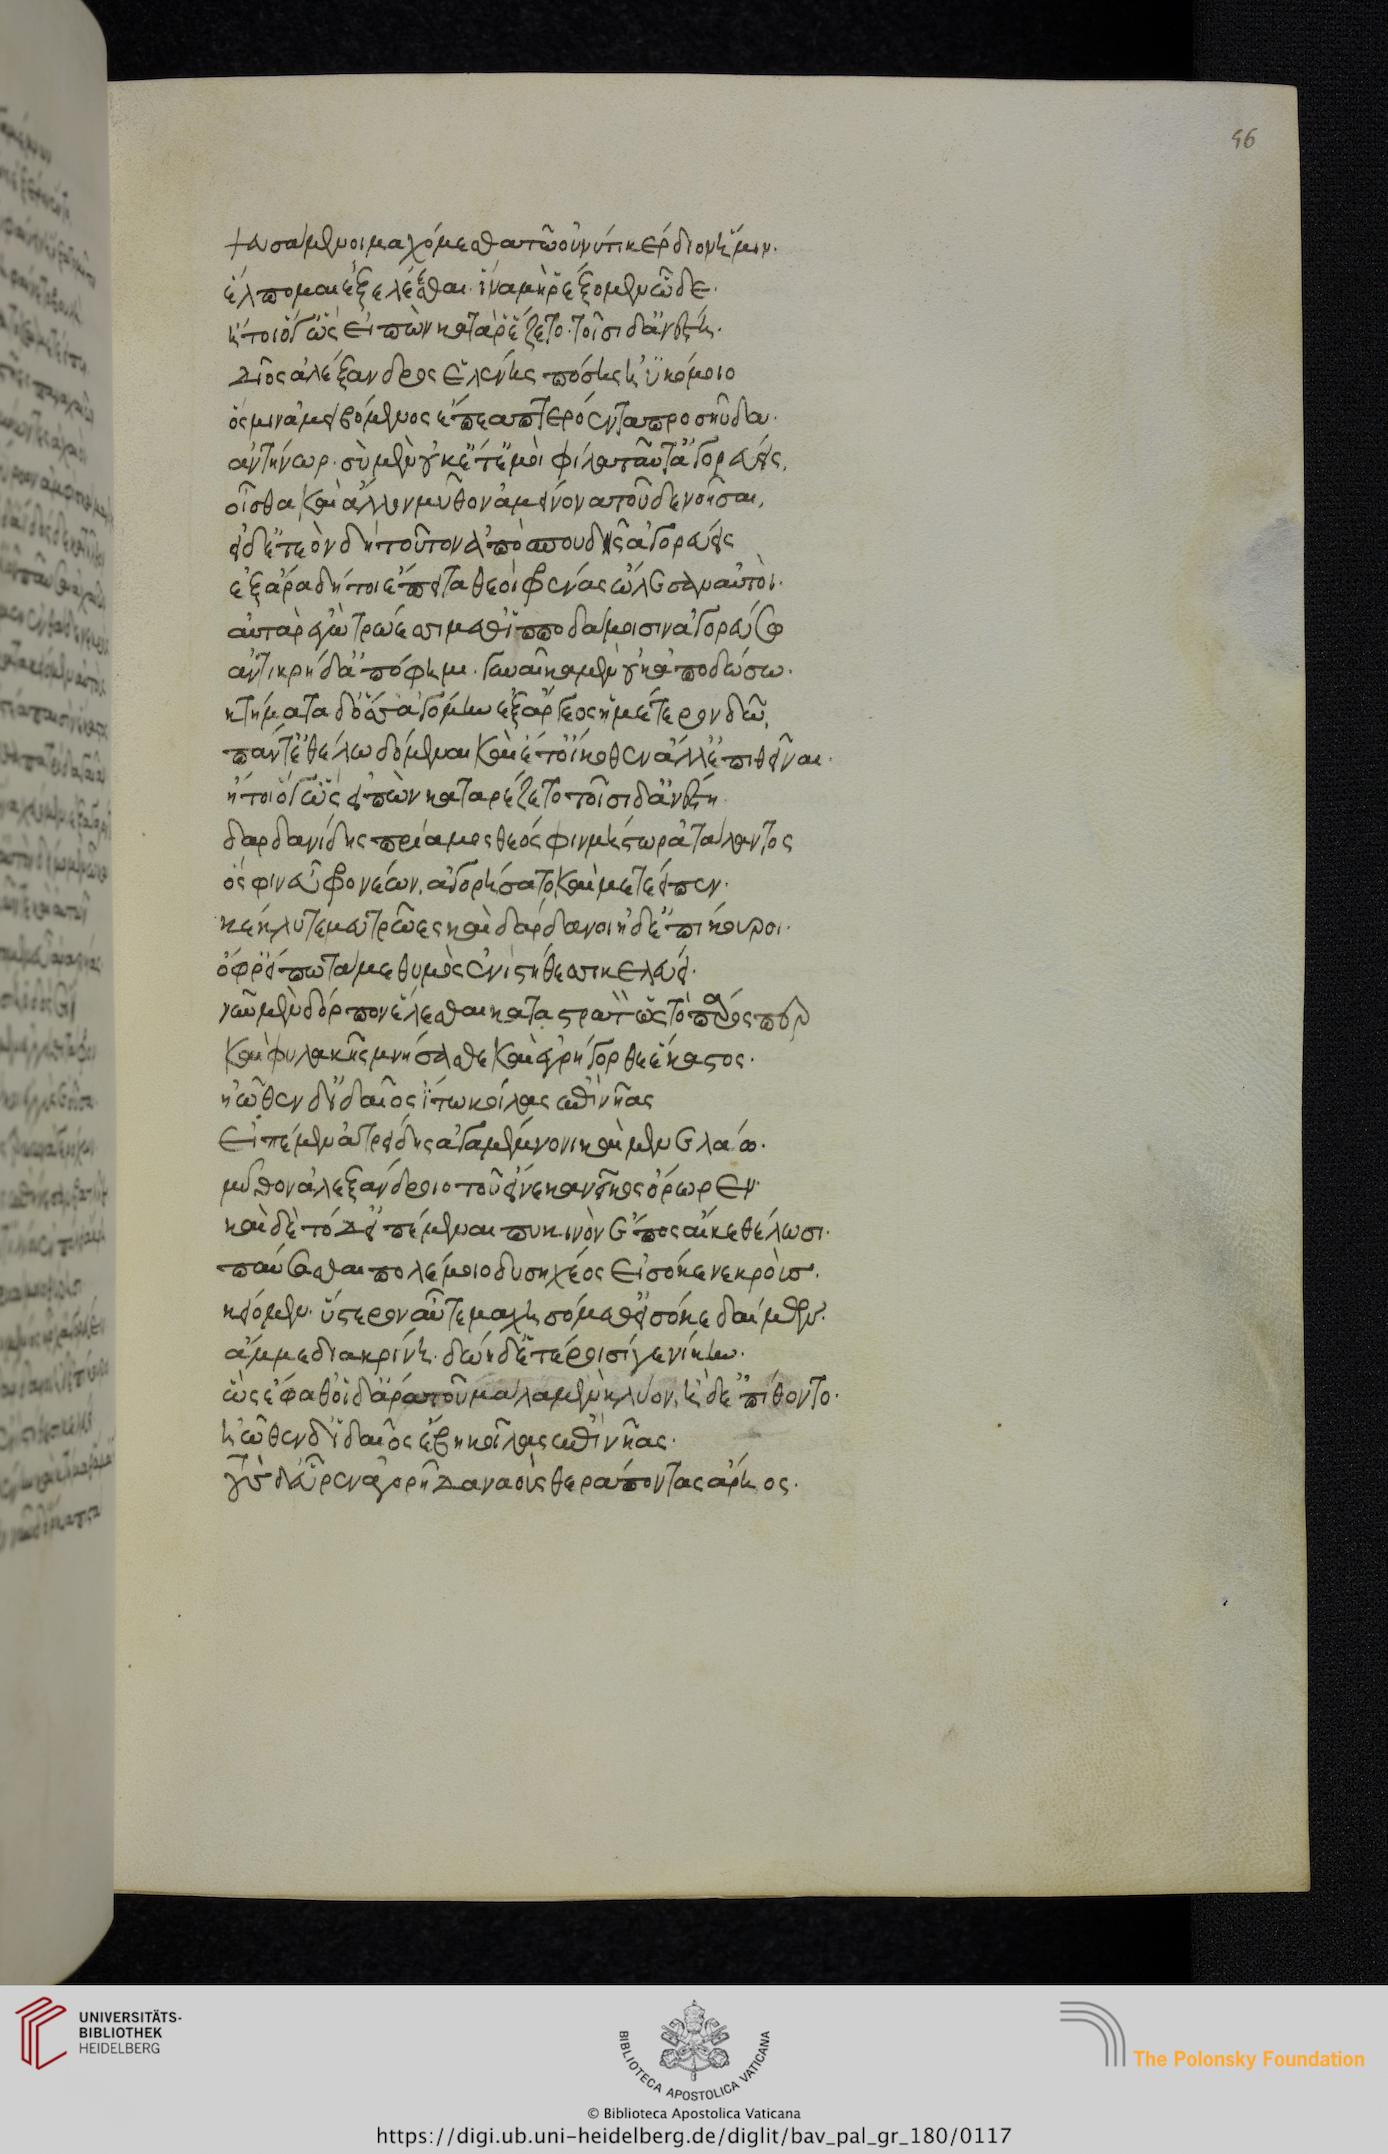 96
ψευσάμενοι μαχόμεσθα τῶ οὔ νύ τι κέρδιον ἥμιν.
ἔλπομαι ἐκτελέεσθαι. ἵνα μὴ ῥέξομεν ὧδε.
ἤτοι ὅγ' ὣς εἰπὼν κατ' ἄρ' ἕζετο. τοῖσι δ' ἀνέστη.
δῖος ἀλέξανδρος ἑλένης πόσις ἠϋκόμοιο
ὅς μιν ἀμειβόμενος ἔπεα πτερόεντα προσηύδα.
ἀντῆνορ. σὺ μὲν οὐκέτ' ἐμοὶ φίλα ταῦτ' ἀγορεύεις,
οἶσθα καὶ ἄλλον μῦθον ἀμείνονα τοῦδε νοῆσαι,
εἰ δ' ἐτεὸν δὴ τοῦτον ἀπὸ σπουδῆς ἀγορεύεις
ἐξ ἄρα δή τοι ἔπειτα θεοὶ φρένας ὤλεσαν αὐτοὶ.
αὐτὰρ ἐγὼ τρώεσσι μεθ' ἱπποδάμοισιν ἀγορεύσω
ἀντικρὴ δ' ἀπόφημι. γυναῖκα μὲν οὐκ ἀποδώσω.
κτήματα δ' ὅσσ' ἀγόμην ἐξ ἄργεος ἡμέτερον δῶ,
πάντ' ἐθέλω δόμεναι καὶ ἔτ' οἴκοθεν ἄλλ' ἐπιθεῖναι.
ἤτοι ὅγ' ὣς εἰπὼν κατ' ἄρ' ἕζετο τοῖσι δ' ἀνέστη
δαρδανίδης πρίαμος θεόφιν μήστωρ ἀτάλαντος
ὅ σφιν ἐϋφρονέων. ἀγορήσατο καὶ μετέειπεν.
κέκλυτέ μευ τρῶες καὶ δάρδανοι ἠδ' ἐπίκουροι.
ὄφρ' εἴπω τά με θυμὸς ἐνὶ στήθεσσι κελεύει.
νῦν μὲν δόρπον ἕλεσθαι κατα στρατ ὡς τὸ πάρος περ
καὶ φυλακῆς μνήσασθε καὶ ἐγρήγορθε ἕκαστος.
ἠῶθεν δ' ἰδαῖος ἴτω κοίλας ἐπὶ νῆας
εἰπέμεν ἀτρείδης ἀγαμέμνονι καὶ μενελάω.
μῦθον ἀλεξάνδροιο τοῦ εἵνεκα νεῖκος ὄρωρεν.
καὶ δὲ τόδ' εἰπέμεναι πυκινὸν ἔπος αἴ κε θέλωσι.
παύσασθαι πολέμοιο δυσηχέος εἰσόκε νεκρούς.
κείομεν. ὕστερον αὖτε μαχησόμεθ' εἰσόκε δαίμων.
ἄμμε διακρίνη. δώη δ' ἑτέροισί γε νίκην.
ὣς ἔφαθ' οἱ δ' ἄρα τοῦ μάλα μὲν κλύον, ἠδὲ πίθοντο.
ἠῶθεν δ' ἰδαῖος ἔβη κοίλας ἐπὶ νῆας.
τοὺς δ' εὗρ' ἐν ἀγορῆ δαναοὺς θεράποντας ἄρηος.
UNIVERSITÄTS-
BIBLIOTHEK
HEIDELBERG
BIBLIOTECA APOSTOLICA VATICANA
The Polonsky Foundation
© Biblioteca Apostolica Vaticana
https://digi.ub.uni-heidelberg.de/diglit/bav_pal_gr_180/0117